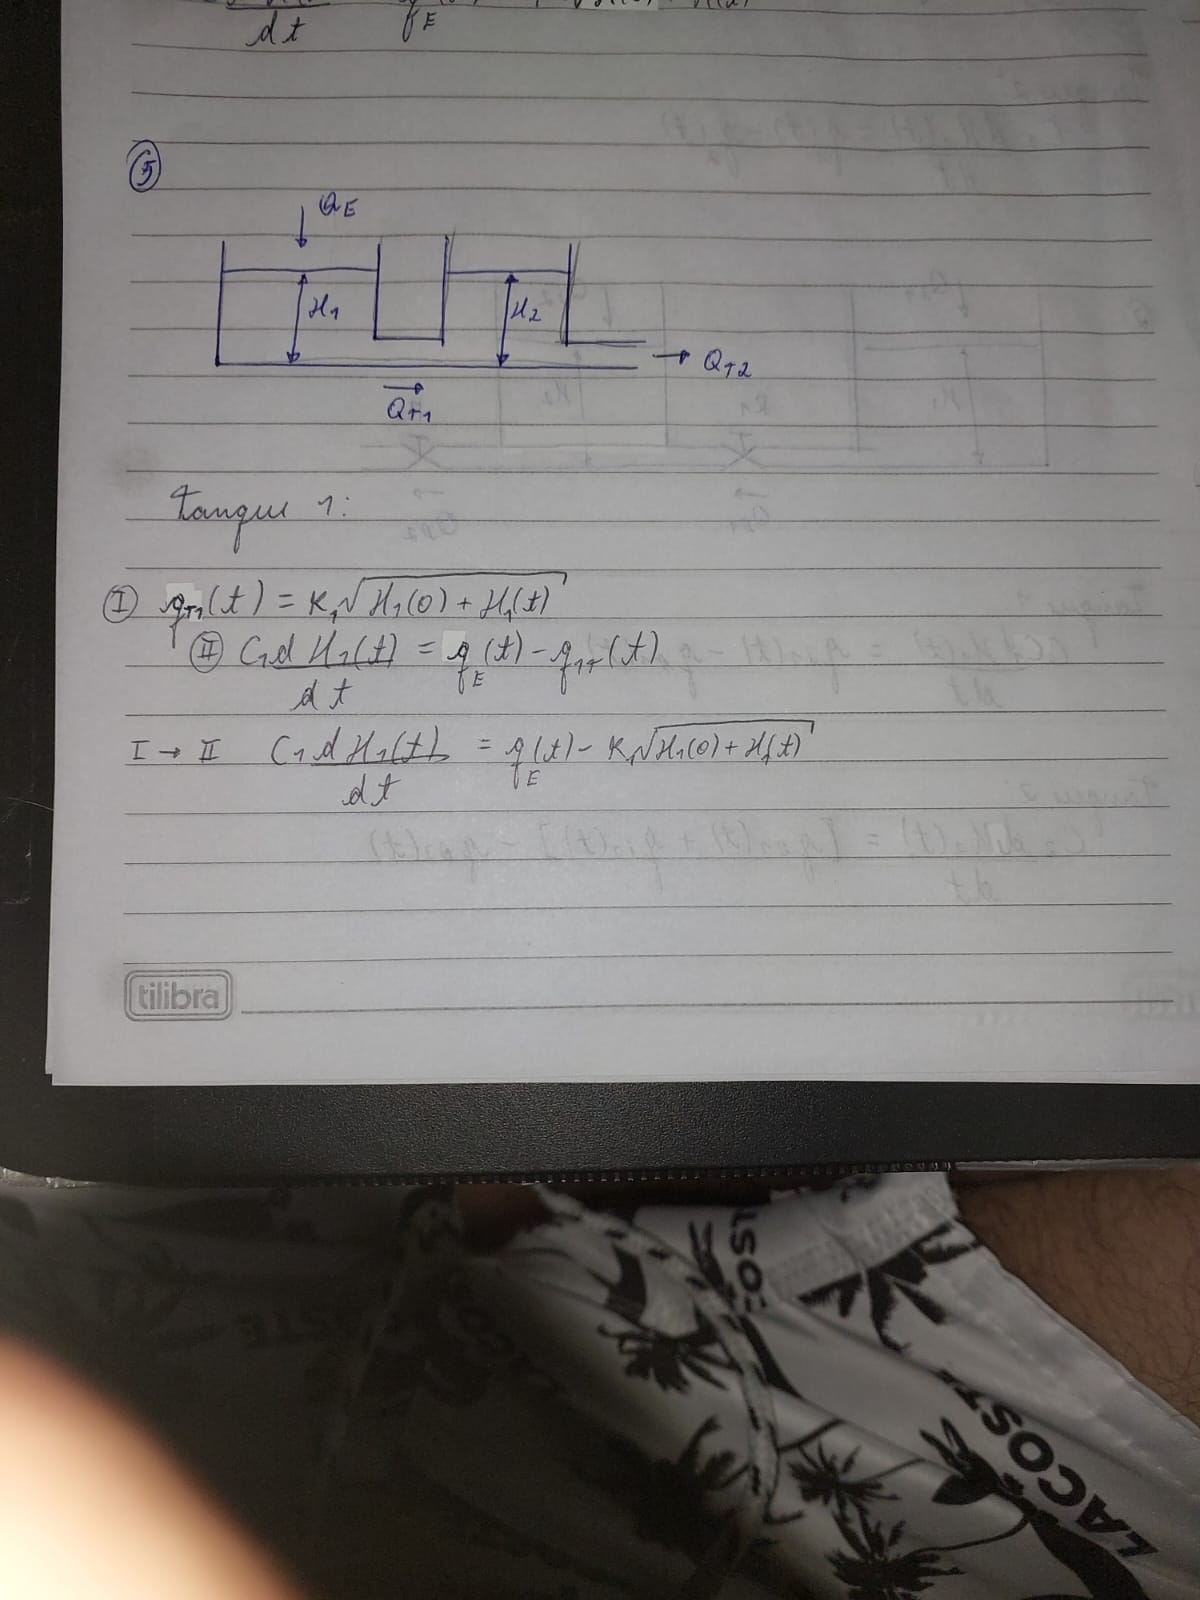 dt
q E
5
QE
H1
H2
QT2
QT1
Tanque 1:
I qT1(t) = K1√H1(0) + H1(t)
II C1 d H1(t) = qE(t) - q1T(t)
dt
I → II C1 d H1(t) = qE(t) - K1√H1(0) + H1(t)
dt
tilibra
LACOSTE